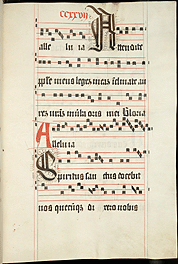 ccxxvii
alle luia Attendite
pple meus legem meam Inclinate au
rem vestram in verba oris mei Gloria
Alleluia
Spiritus san ctus docebit
vos quecunq di xero vobis